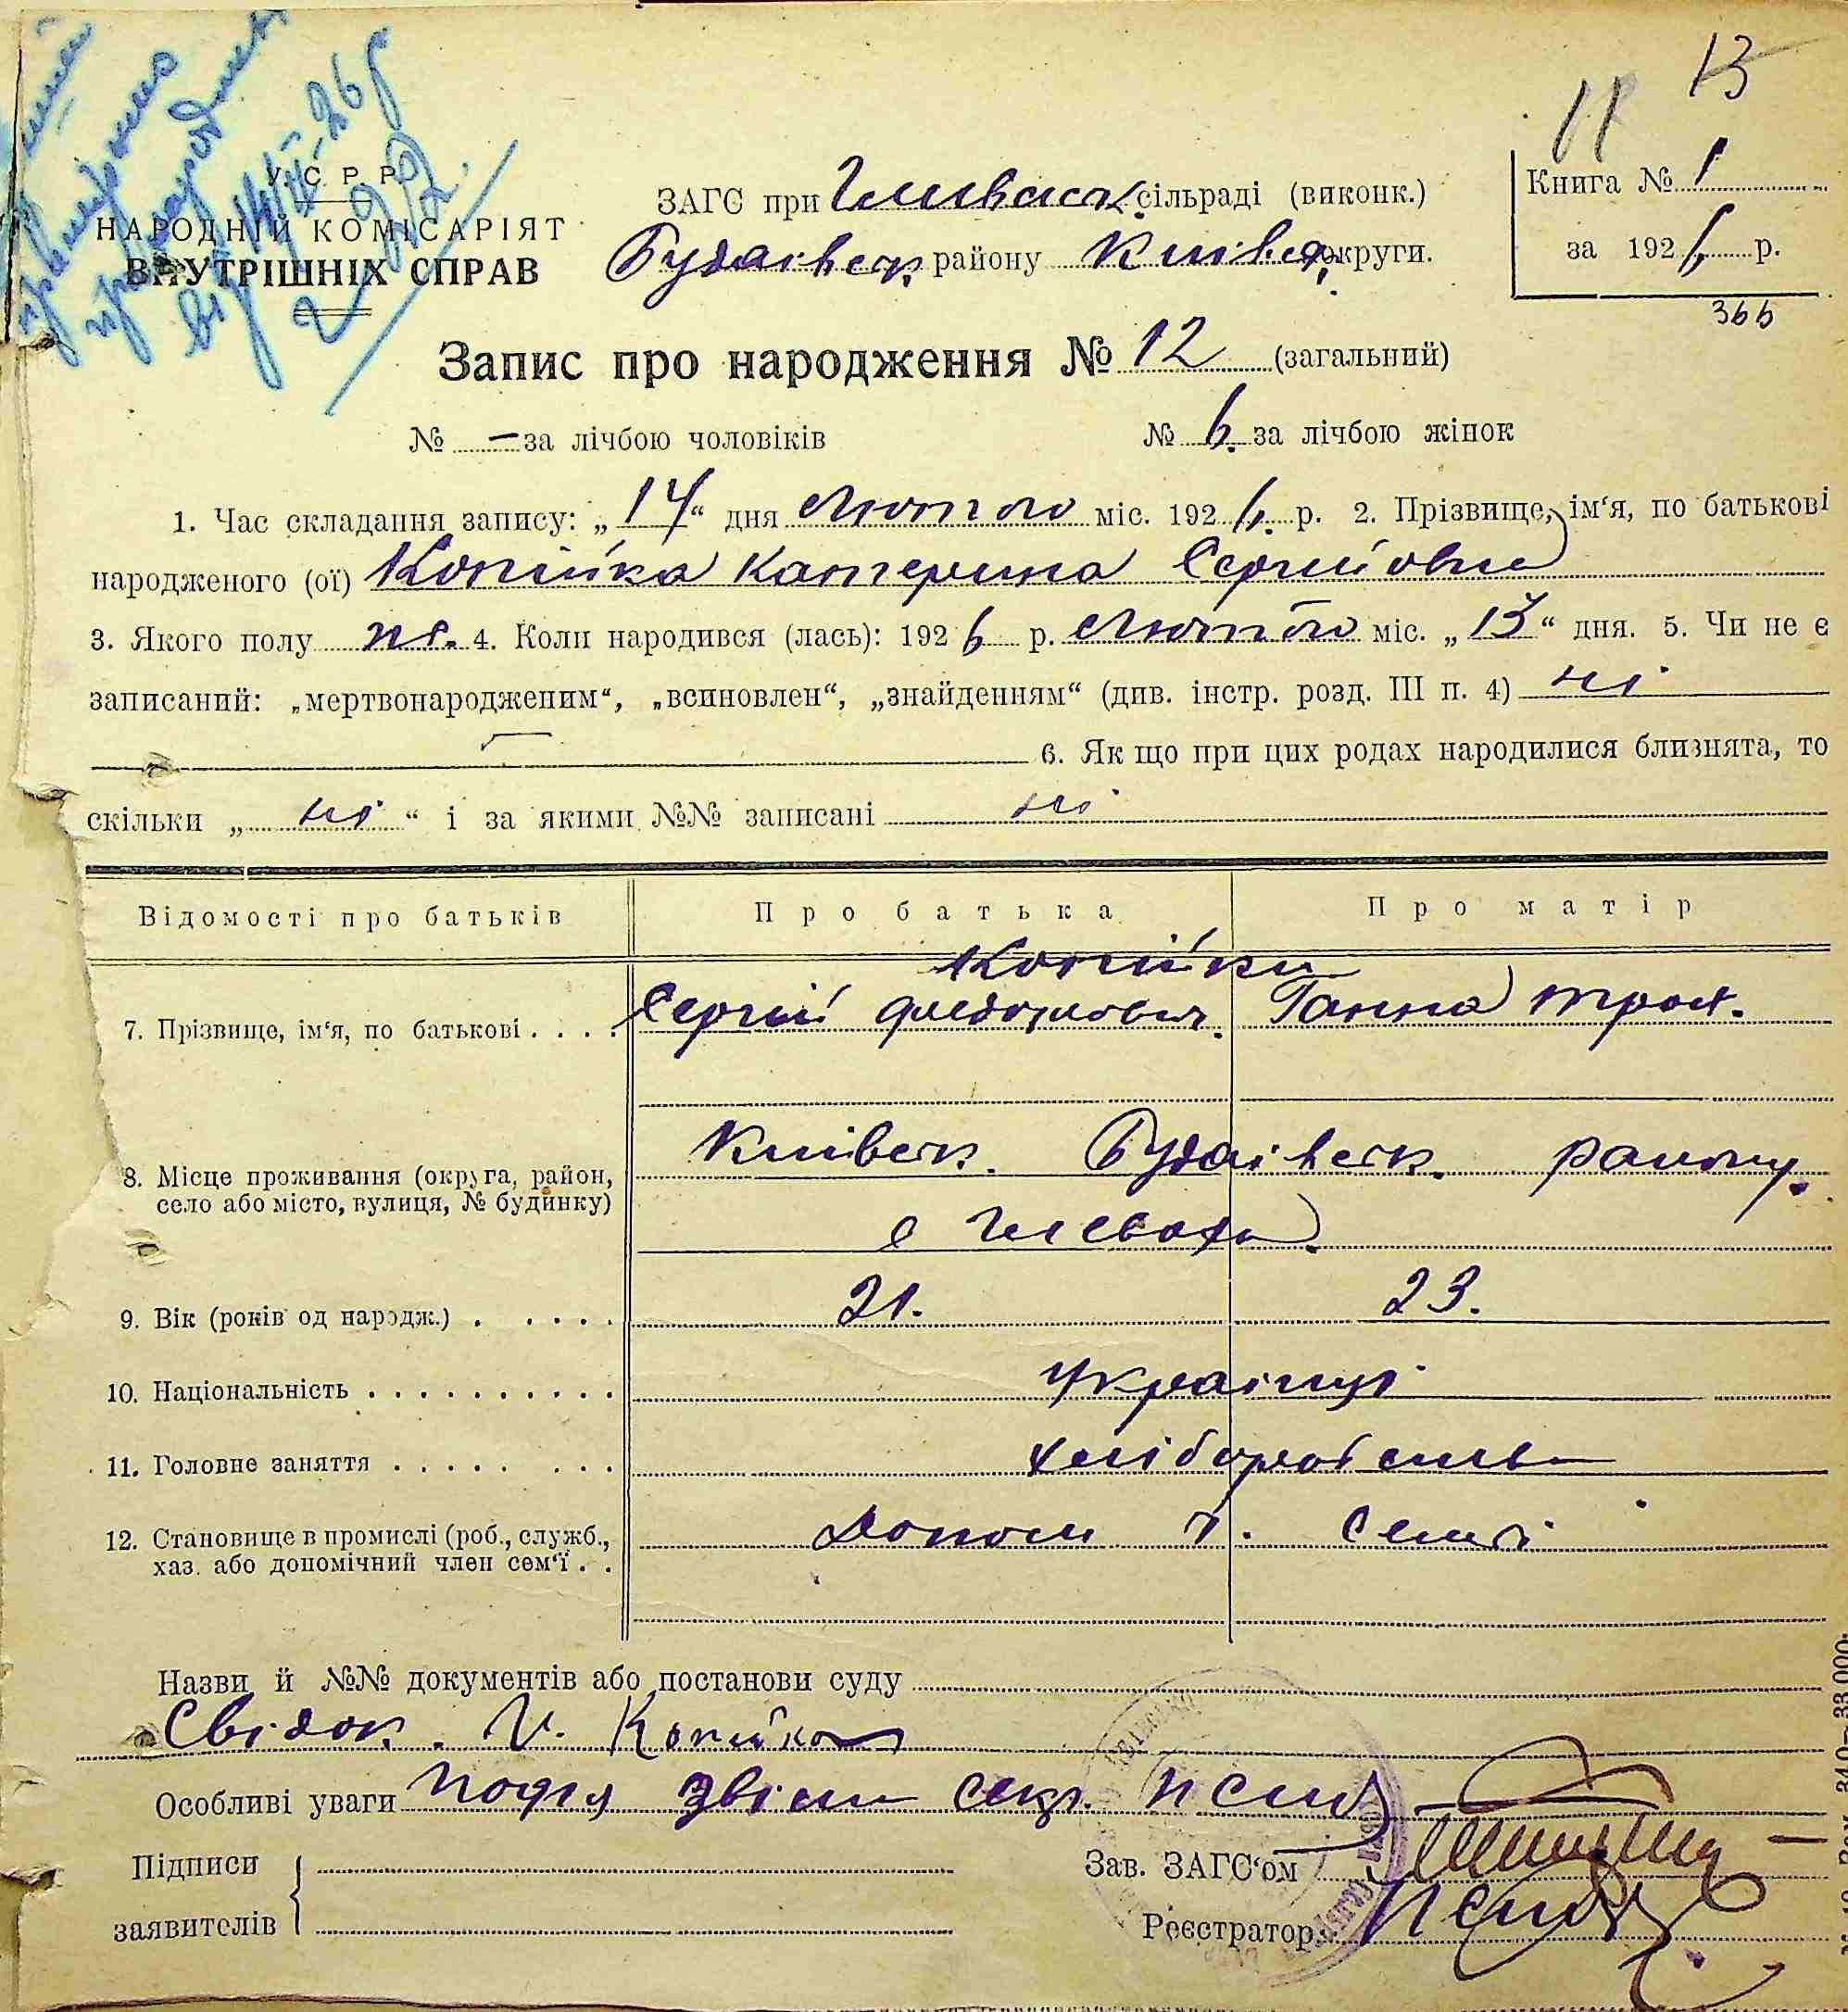 13
11
У. С. Р. Р.
НАРОДНІЙ КОМІСАРІЯТ
ВНУТРІШНІХ СПРАВ
ЗАГС при Глеваськ. сільраді (виконк.)
Будаівськ. району Київськ. округи.
Книга № 1
за 1926 р.
366
Запис про народження № 12 (загальний)
№ – за лічбою чоловіків
№ 6. за лічбою жінок
1. Час складання запису: „14“ дня Лютого міс. 1926. р. 2. Прізвище, ім‘я, по батькові
народженого (ої) Копійка Катерина Сергійовна
3. Якого полу ж. 4. Коли народився (лась): 1926 р. Лютого міс. „13“ дня. 5. Чи не є
записаний: „мертвонародженим“, „всиновлен“, „знайденням“ (див. інстр. розд. III п. 4) ні
6. Як що при цих родах народилися близнята, то
скільки „ ні “ і за якими №№ записані ні
Відомості про батьків
Про батька
Про матір
Копійки
7. Прізвище, ім‘я, по батькові . . . .
Сергій Федорович.
Ганна Трох.
8. Місце проживання (округа, район,
село або місто, вулиця, № будинку)
Київськ. Будаівськ. району.
с Глеваха.
9. Вік (років од народж.) . . . . .
21.
23.
10. Національність . . . . . . . . . .
Українці
11. Головне заняття . . . . . . . .
хліборобство
12. Становище в промислі (роб., служб.,
хаз. або допомічний член сем‘ї . .
Допом. Семі
Назви й №№ документів або постанови суду
Свідок. Копійка
Особливі уваги Подія звіст секр.
Підписи
заявителів
Зав. ЗАГС‘ом
Реєстратор